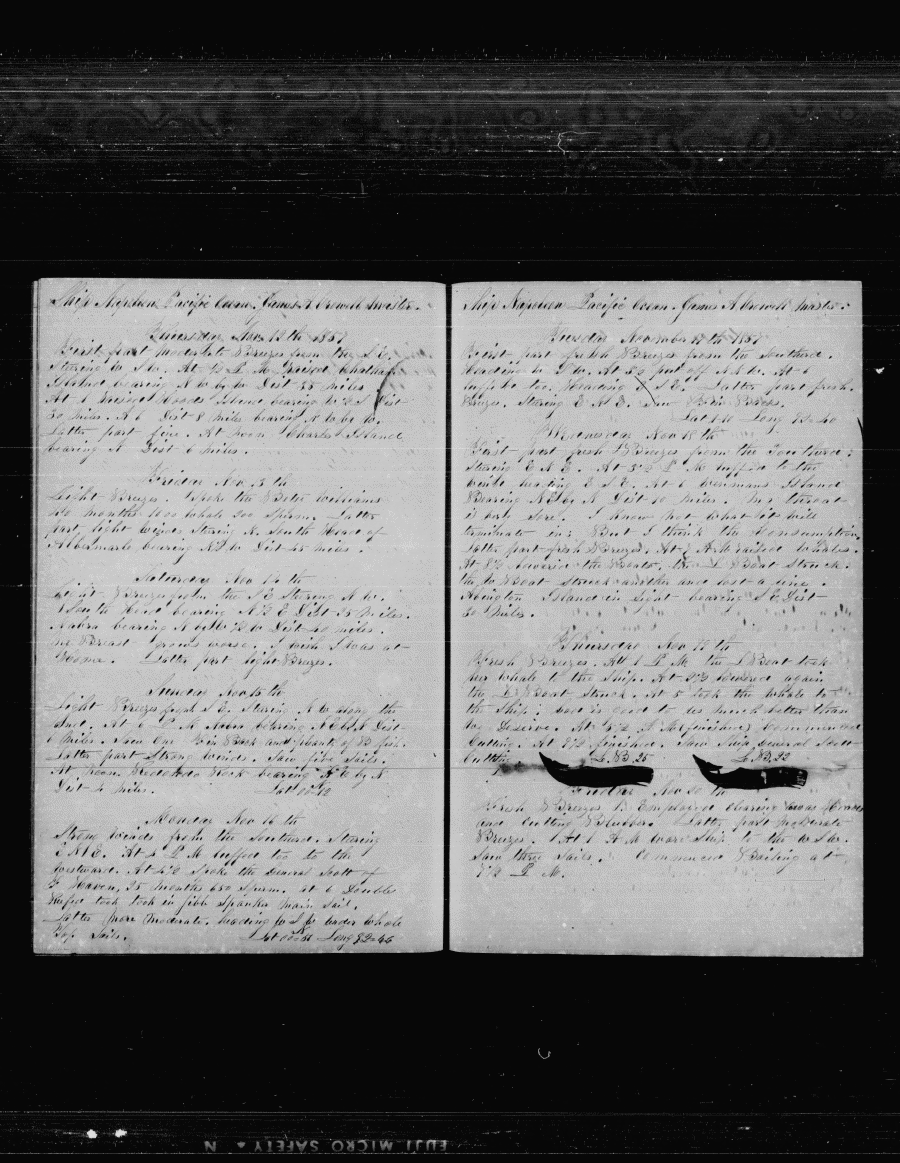 Ship Napoleon Pacific Ocean. James A Crowell Master.
Thursday Nov 12th 1857
First part moderate Breezes from the S.E.
Stering W S W. At 1/2 P. M. raised Chatham
Island bearing N W by W Dist 35 miles
At 6 raised Hoods Island bearing W S Dist
30 miles. A 6 Dist 8 miles bearing N W by W.
Latter part fine. At noon Charles Island
bearing N Dist 6 miles.
Friday Nov 13th
Light Breezes. Spoke the Roger Williams
months 1100 whale 200 Sperm. Latter
part light winds Stering N. South Head of
Albemarle bearing N W Dist 45 miles.
Saturday Nov 14th
Light Breezes from the S E Stering N W.
South Head bearing N 1/2 E Dist 35 miles.
bearing N by W 1/2 W Dist 40 miles.
me Breast grows worse. I wish I was at
Home. Latter part light Breezes.
Sunday Nov 15th
Light Breezes from S E. Stering N W along the
land. At 6 P M bearing N E by N Dist
6 Miles. Saw One Fin Back and plenty of B fish.
Latter part Strong winds. Saw five Sails.
At noon Redondo Rock bearing N by N
Dist 4 miles. Lat 00-12
Monday Nov 16th
Strong winds from the Southard. Stering
E N E. At 4 P M luffed too to the
Westward. At 4 1/2 Spoke the General Scott of
F Haven, 25 months 650 Sperm. at 6 Doubled
Reefed took in jibb Spanker Main Sail.
Latter more moderate. heading W S W under whole
Top Sails. Lat 00-51 Long 92-46
Ship Napoleon Pacific Ocean. James A Crowell Master.
Tuesday November 17th 1857
First part fresh Breezes from the Southerd.
Heading W S W. At 5 put off N N W. At 6
luffed too. Heading S E. Latter part fresh
Breezes. Stering E N E. Saw
Lat 1-11 Long
Wednesday Nov 18th
First part fresh Breezes from the Southerd:
Stering E N E. At 5 1/2 P M luffed to the
wind heading E S E. At 6 Wenmans Island
Bearing N E by N Dist 10 miles. me throat
is very sore. I know not what it will
terminate in; But I think the Consumption
Latter part fresh Breezes. At 7 A M raised whales.
At 8 1/2 lowered the Boats, the L Boat Struck:
the W Boat Struck another and lost a line.
Abington Island in sight bearing S E Dist
30 miles.
Thursday Nov 19th
Fresh Breezes. At 1 P M the L Boat took
her whale to the Ship. At 2 1/2 lowered again
the L Boat Struck. At 5 took the whale to
the Ship: God is good to us much better than
we Deserve. At 5 1/2 P M (finished) Commenced
Cutting. At 9 1/2 finished. Saw Ship General Scott
Cutting
L. B. 25 L. B. 22
Friday Nov 20th
Fresh Breezes Employed clearing away
and Cutting Blubber. Latter part moderate
Breezes. At 1 A M ware Ship to the W S W.
Saw three Sails. Commenced Boiling at
7 1/2 P. M.
FUJI MICRO SAFETY N